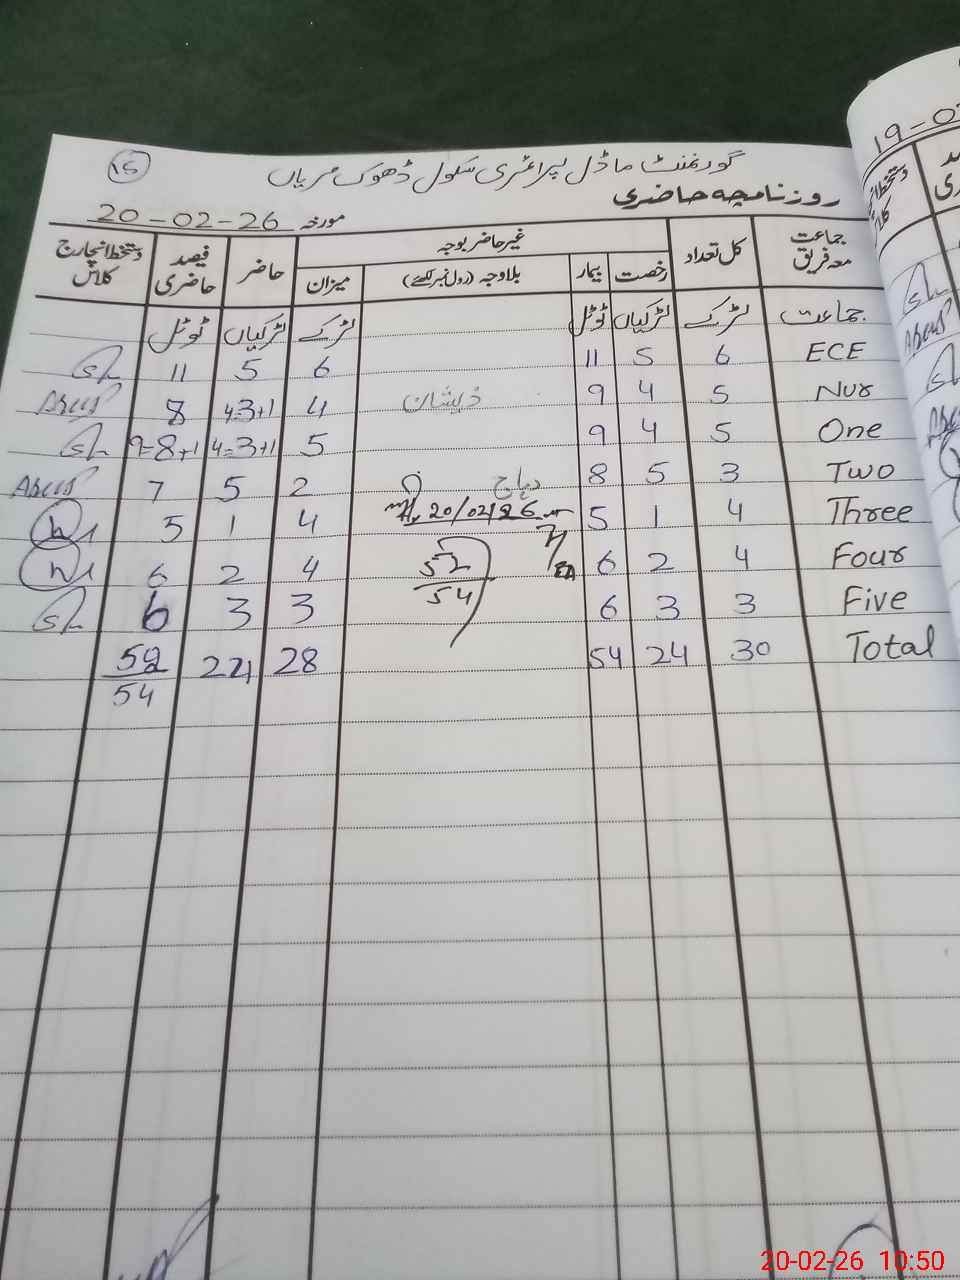 15
گورنمنٹ ماڈل پرائمری سکول ڈھوک مریاں
روزنامچہ حاضری
مورخہ 20-02-26
جماعت معہ فریق کل تعداد غیر حاضر بوجہ حاضر فیصد حاضری دستخط انچارج کلاس
رخصت بیمار بلاوجہ (رول نمبر لکھئے) میزان
جماعت لڑکے لڑکیاں ٹوٹل لڑکے لڑکیاں ٹوٹل
ECE 6 5 11 6 5 11
Nur 5 4 9 ذیشان 4 4=3+1 8
One 5 4 9 5 4=3+1 9=8+1
Two 3 5 8 2 5 7
Three 4 1 5 20/02/26 4 1 5
Four 4 2 6 52/54 4 2 6
Five 3 3 6 3 3 6
Total 30 24 54 28 24 52/54
19-0
20-02-26 10:50